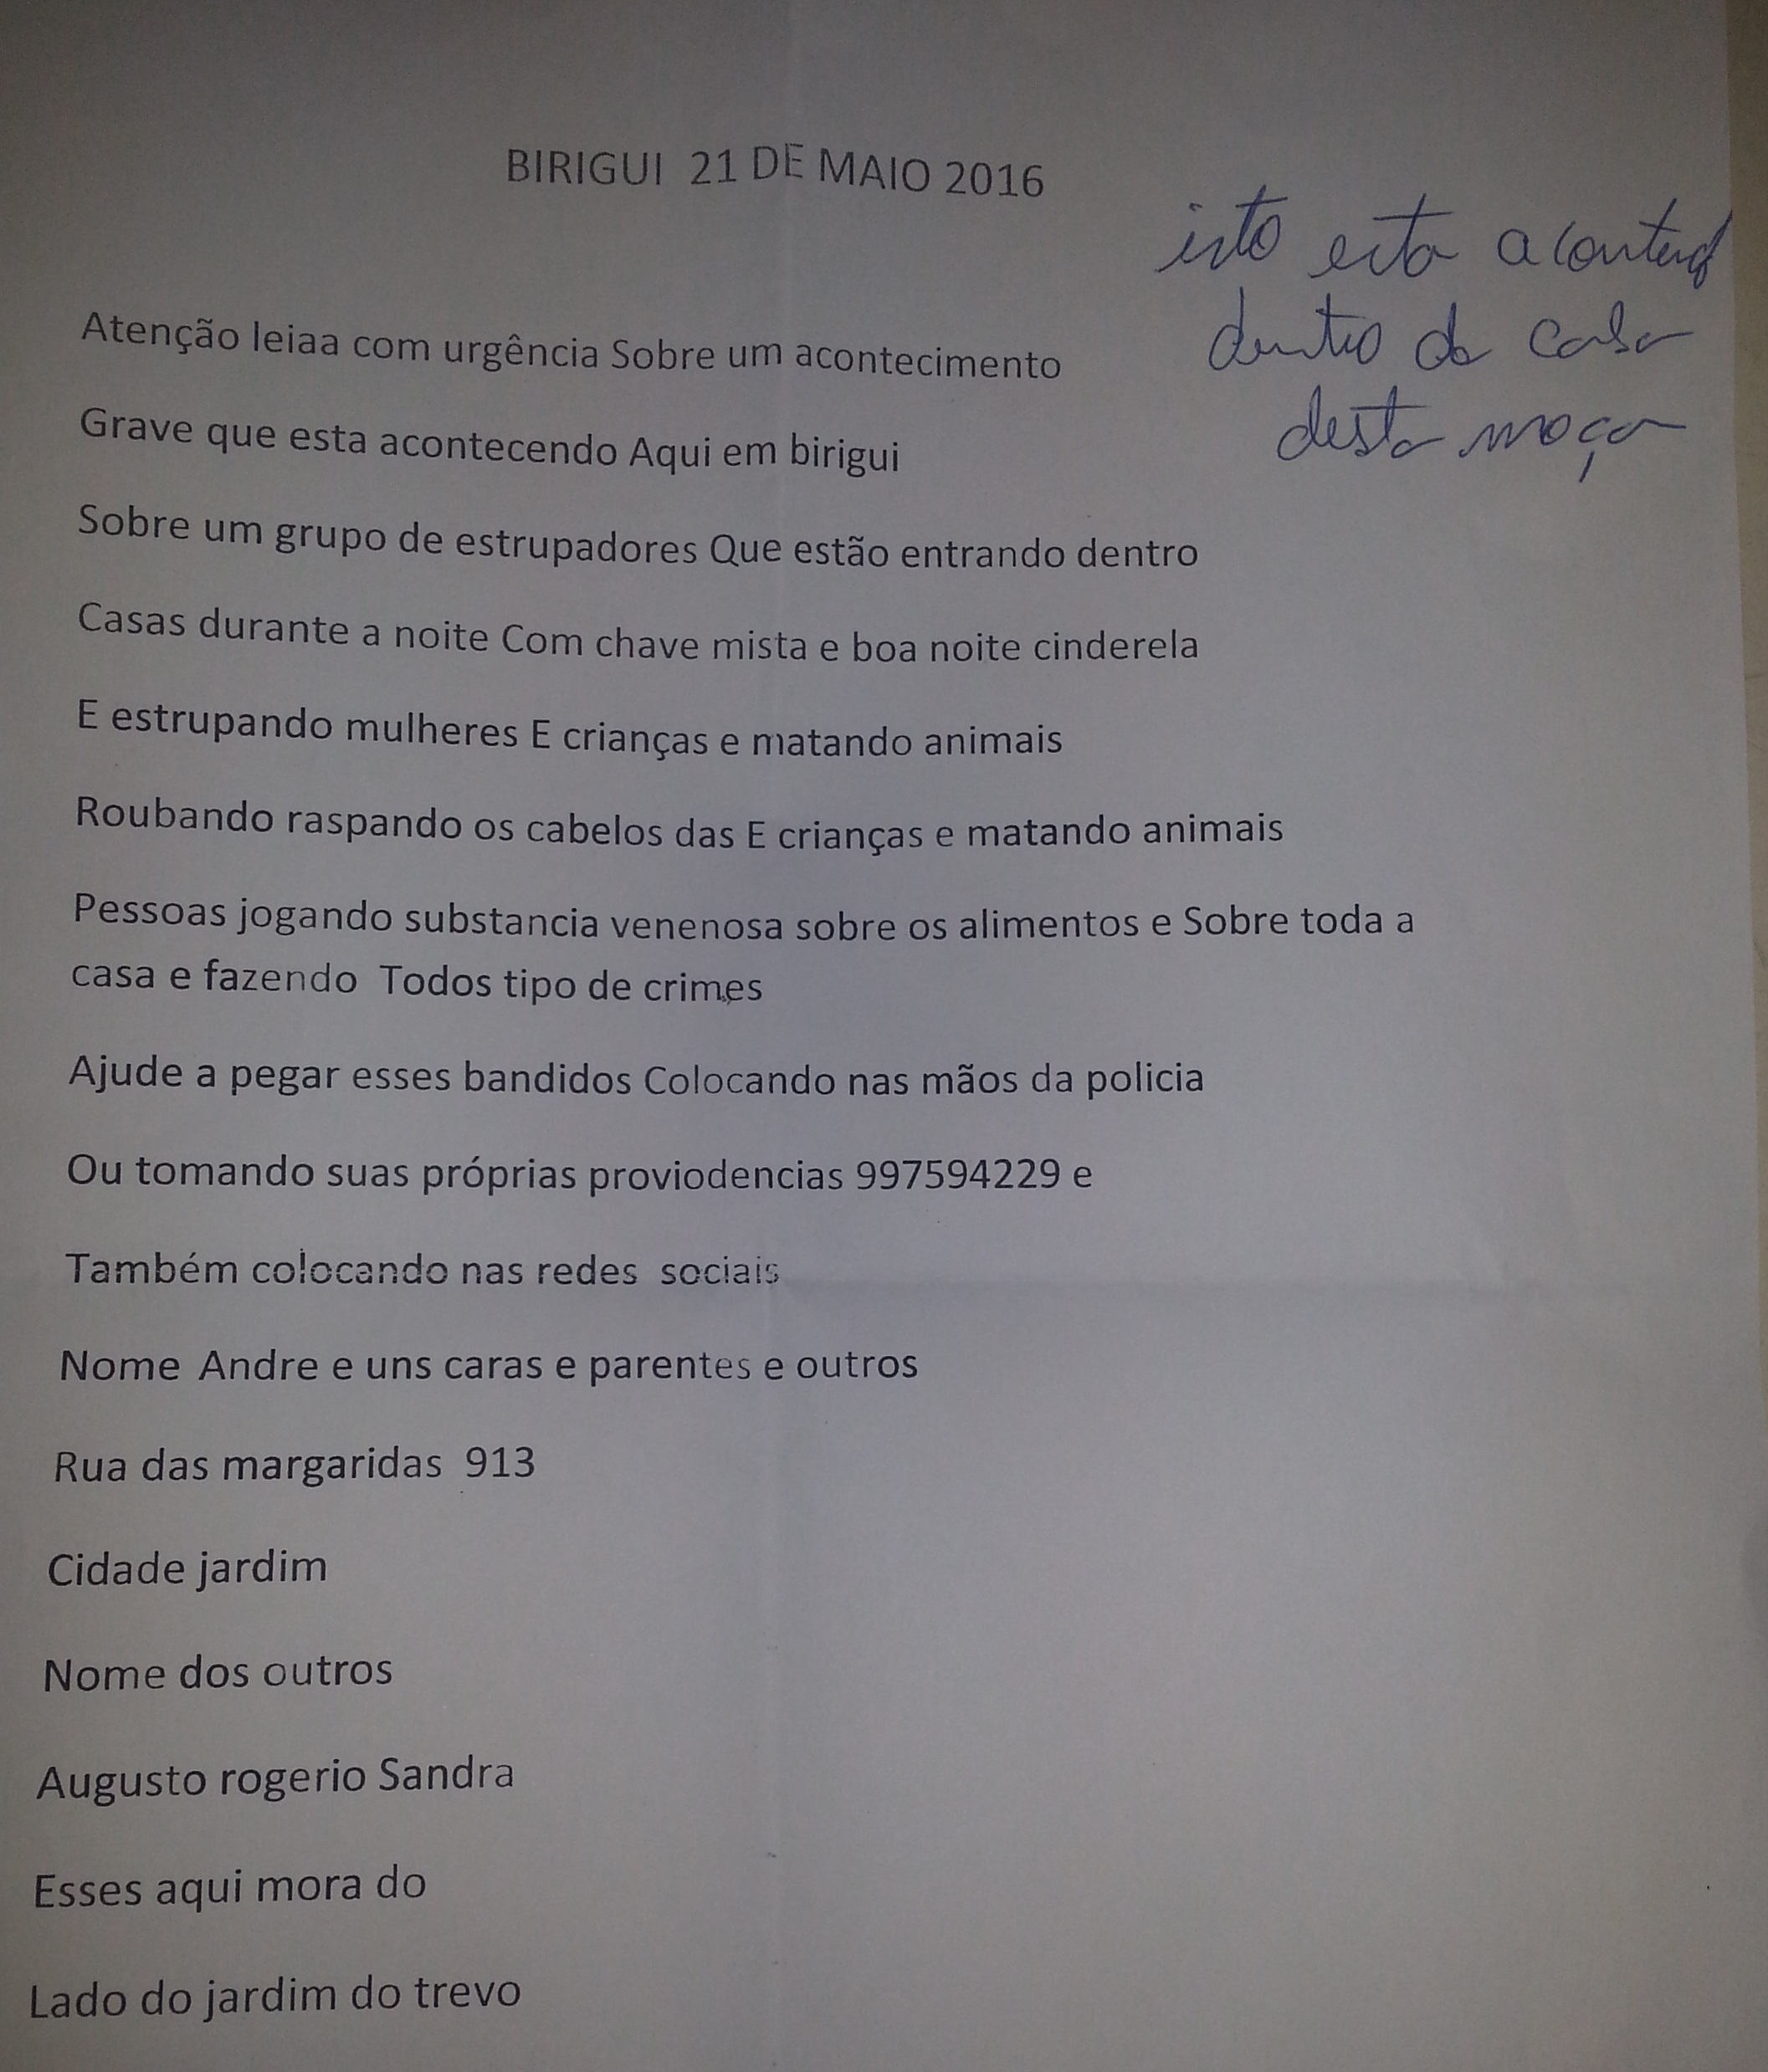 BIRIGUI 21 DE MAIO 2016
isto esta
dentro da casa
desta moça
Atenção leiaa com urgência Sobre um acontecimento
Grave que esta acontecendo Aqui em birigui
Sobre um grupo de estrupadores Que estão entrando dentro
Casas durante a noite Com chave mista e boa noite cinderela
E estrupando mulheres E crianças e matando animais
Roubando raspando os cabelos das E crianças e matando animais
Pessoas jogando substancia venenosa sobre os alimentos e Sobre toda a
casa e fazendo Todos tipo de crimes
Ajude a pegar esses bandidos Colocando nas mãos da policia
Ou tomando suas próprias proviodencias 997594229 e
Também colocando nas redes sociais
Nome Andre e uns caras e parentes e outros
Rua das margaridas 913
Cidade jardim
Nome dos outros
Augusto rogerio Sandra
Esses aqui mora do
Lado do jardim do trevo